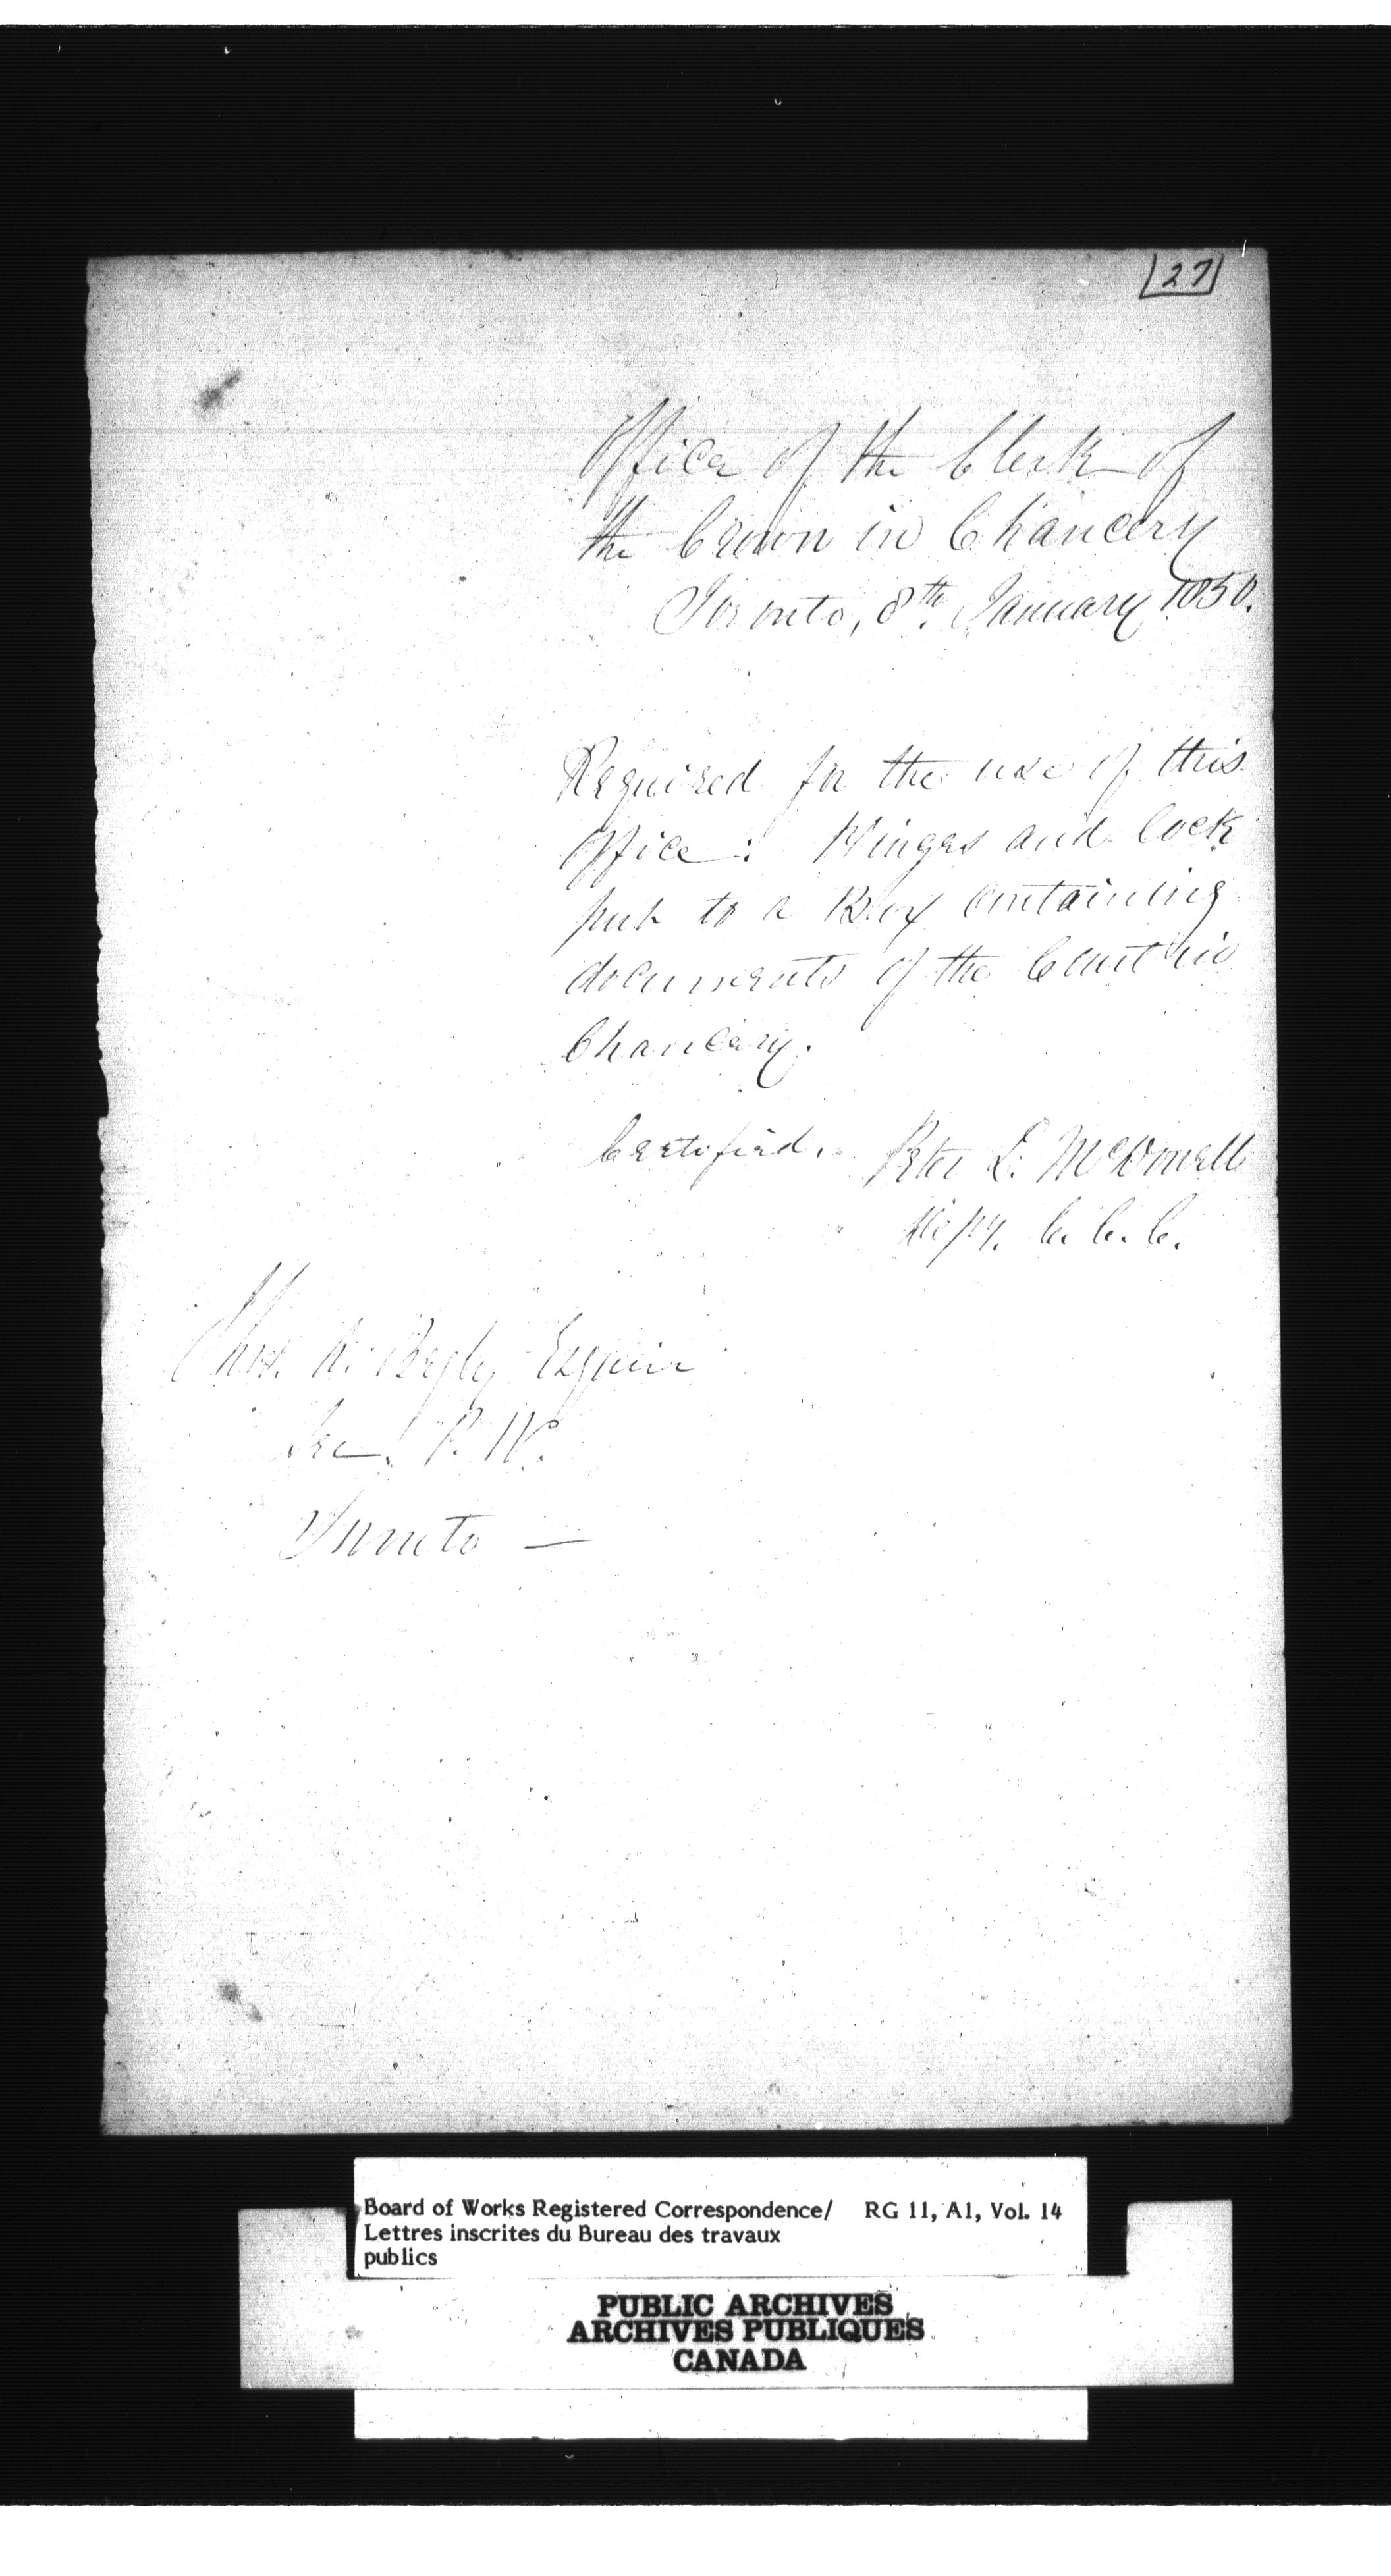 27
Office of the Clerk of
the Crown in Chancery
Toronto, 8th January 1850.
Required for the use of this
Office: Hinges and lock
put to a Box containing
documents of the Court in
Chancery.
Certified. Peter L. McDonell
Depy. C. C. C.
Thos. A. Begly Esquire
Sec. P. W.
Toronto —
Board of Works Registered Correspondence/ RG 11, A1, Vol. 14
Lettres inscrites du Bureau des travaux
publics
PUBLIC ARCHIVES
ARCHIVES PUBLIQUES
CANADA